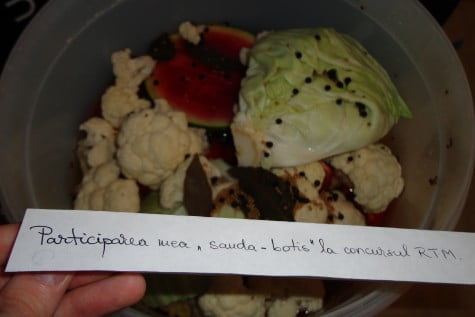 Participarea mea „sanda-botis" la concursul RTM.